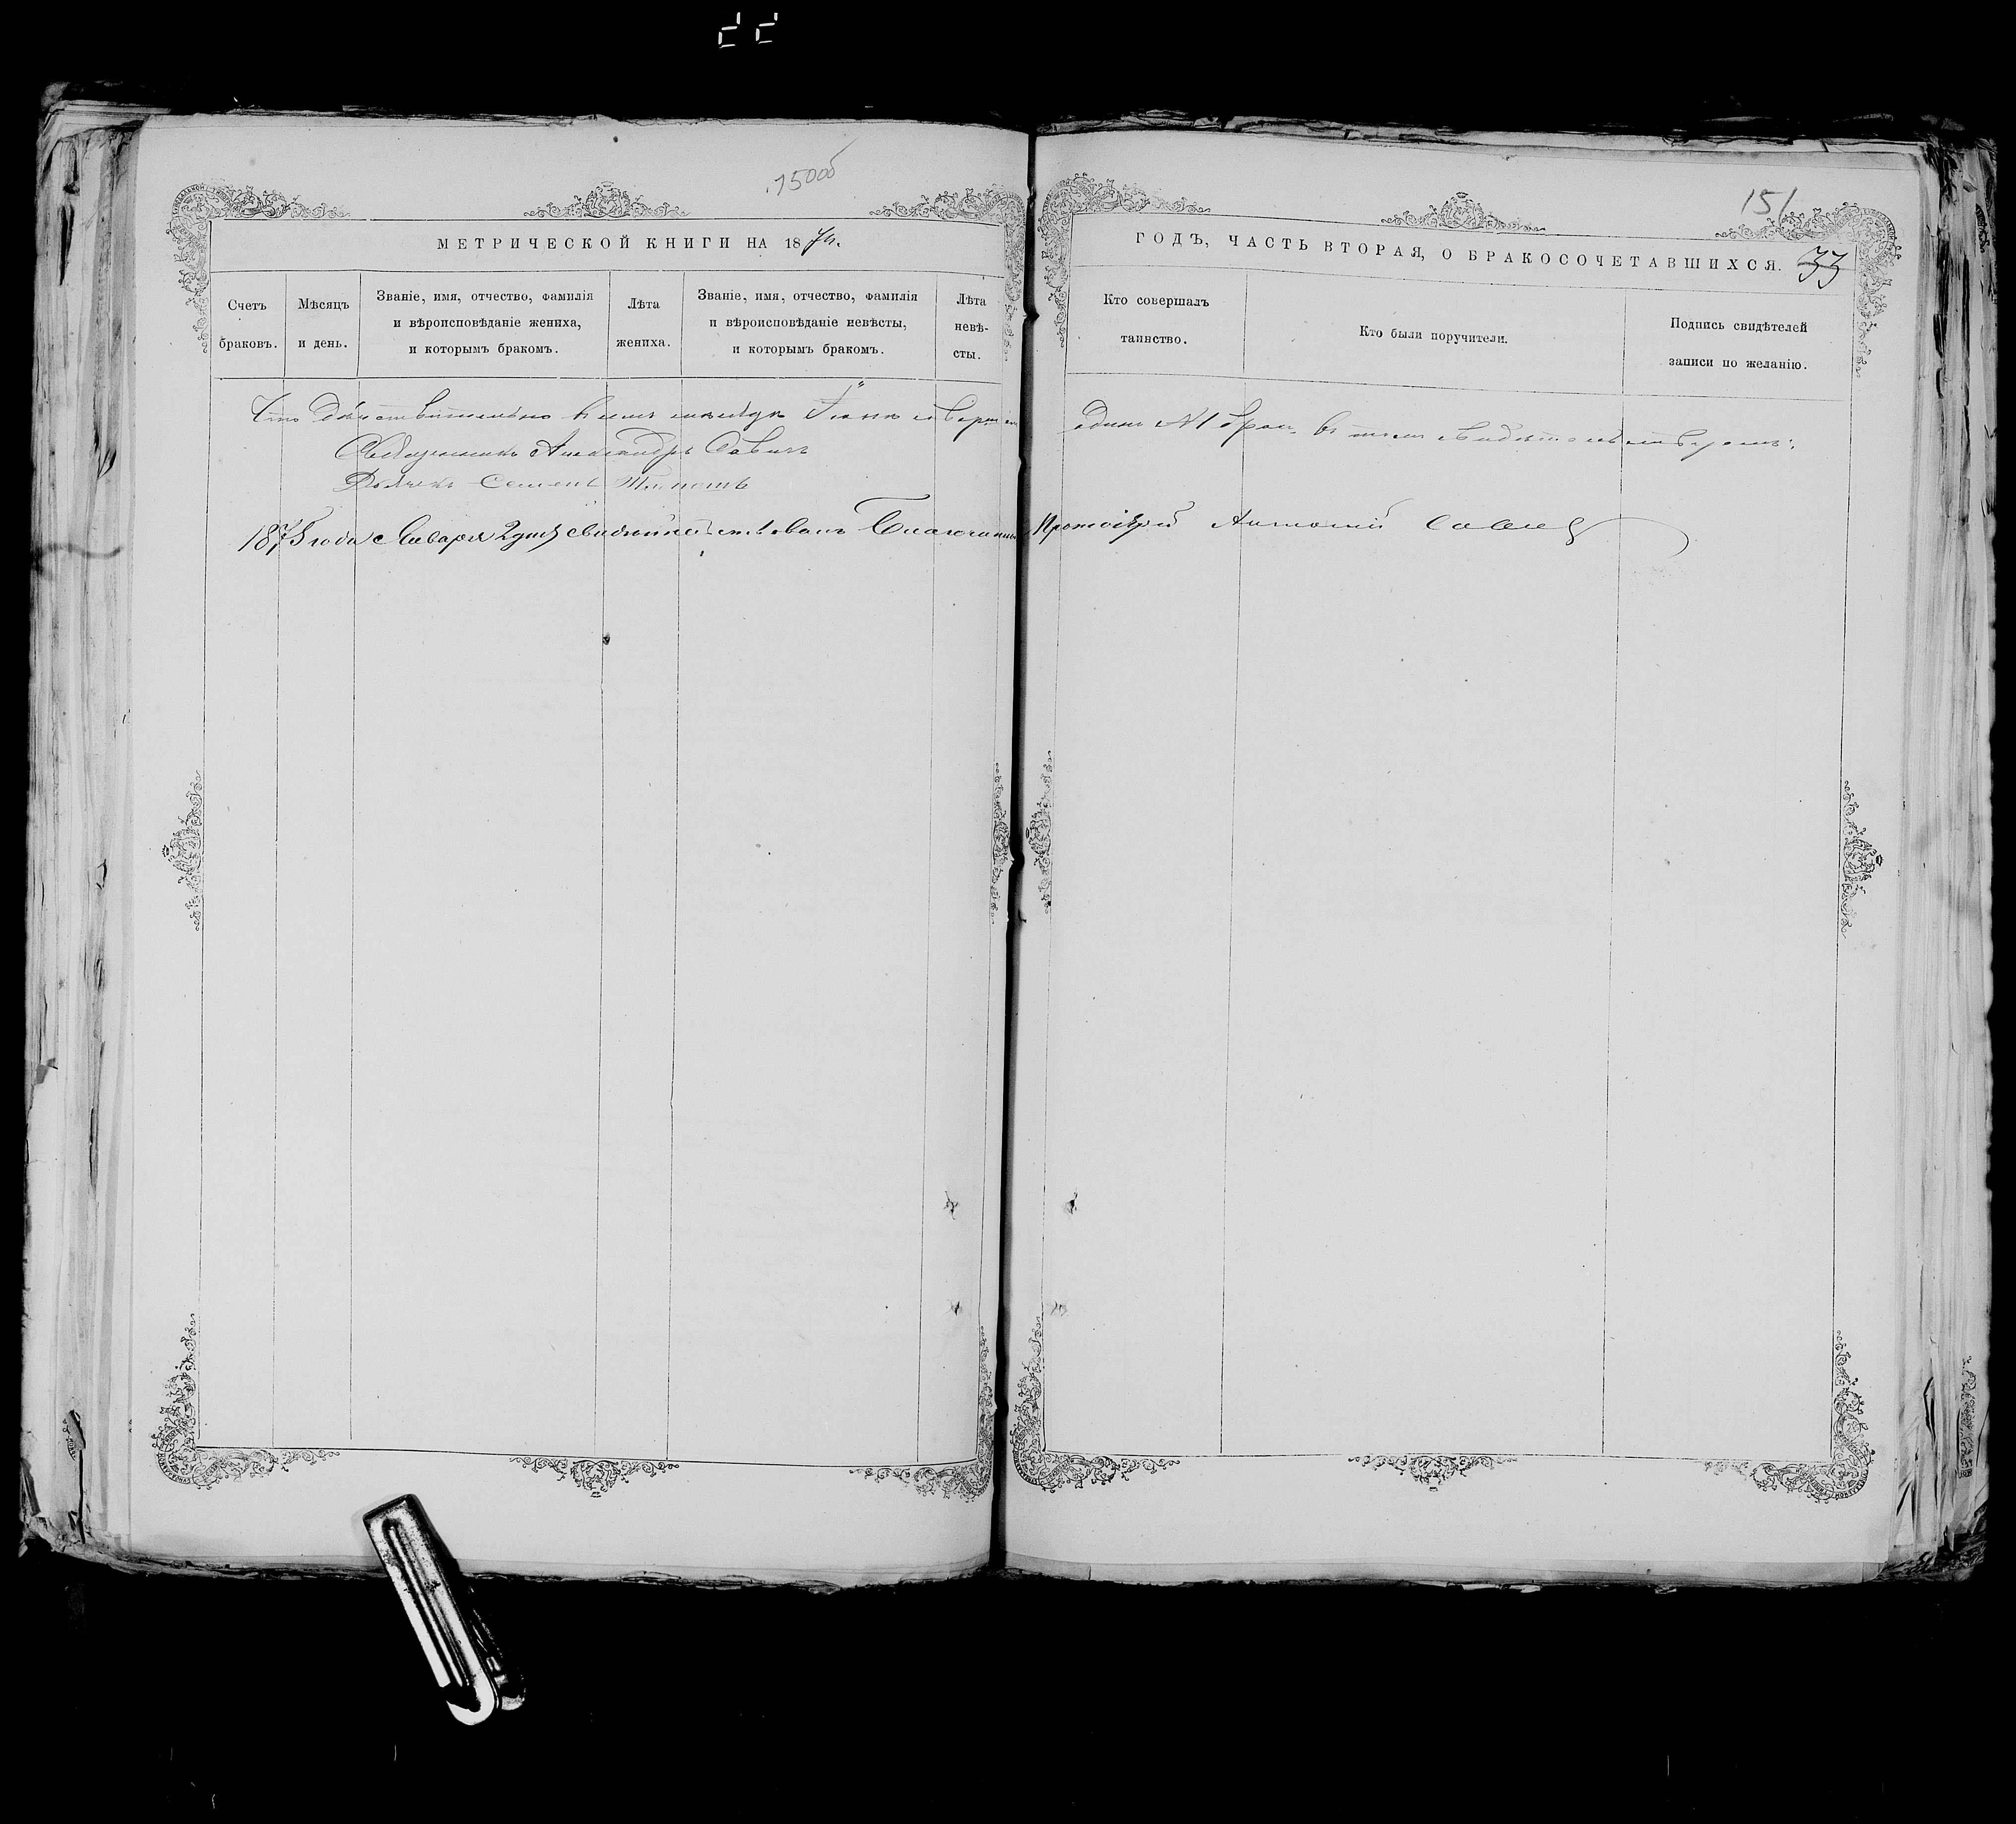 150об
151
МЕТРИЧЕСКОЙ КНИГИ НА 1874.
ГОДЪ, ЧАСТЬ ВТОРАЯ, О БРАКОСОЧЕТАВШИХСЯ. 33
Счетъ браковъ.
Мѣсяцъ и день.
Званіе, имя, отчество, фамилія
и вѣроисповѣданіе жениха,
и которымъ бракомъ.
Лѣта жениха.
Званіе, имя, отчество, фамилія
и вѣроисповѣданіе невѣсты,
и которымъ бракомъ.
Лѣта невѣ-
сты.
Кто совершалъ
таинство.
Кто были поручители.
Подпись свидѣтелей
записи по желанію.
Что дѣйствительно въ семъ одинъ №1 бракъ, въ томъ свидѣтельствуемъ:
Священникъ Александръ Савичъ
Дьячекъ Семенъ
1875 года Января 2 дня свидѣтельствовалъ Благочинный Протоіерей Антоній